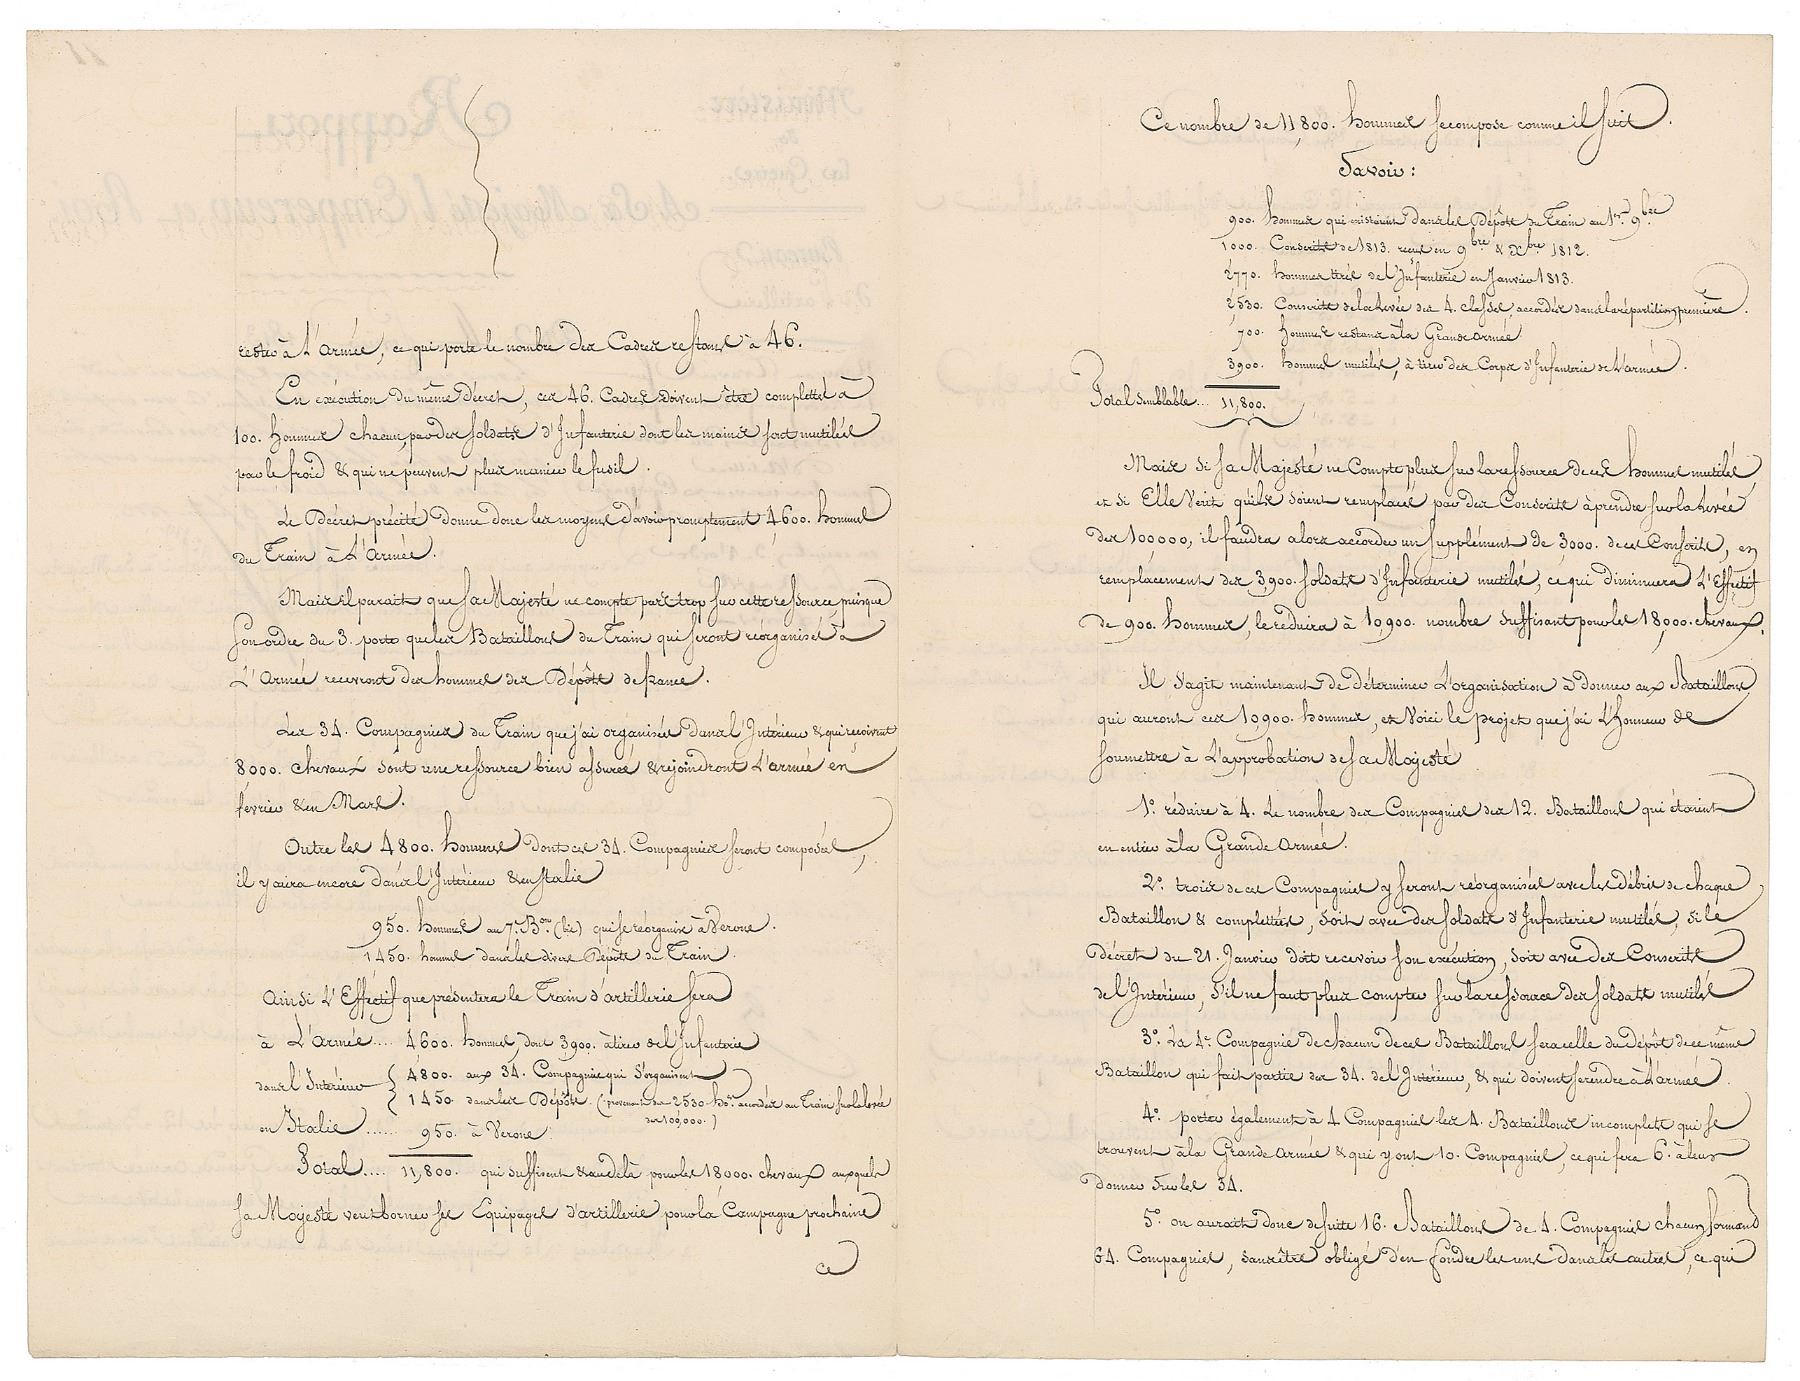 restés à L'armée, ce qui porte le nombre des Cadres restans à 46.
En exécution du même décret, ces 46. Cadres doivent être complettés à
100. hommes chacun, par des soldats d'Infanterie dont les mains sont mutilées
par le froid & qui ne peuvent plus manier le fusil.
Le Décret précité donne donc les moyens d'avoir promptement 4,600. hommes
du Train à L'Armée.
Mais il parait que Sa Majesté ne compte pas trop sur cette ressource, puisque
son ordre du 3. porte que les Bataillons du Train qui seront réorganisés à
L'Armée recevront des hommes des Dépôts de france.
Les 34. Compagnies du Train que j'ai organisées dans l'Intérieur & qui reçoivent
8000. chevaux sont une ressource bien assurée & rejoindront L'armée en
février & en Mars.
Outre les 4800. hommes dont ces 34. Compagnies seront composées,
il y aura encore dans l'Intérieur & en Italie
950. hommes au 7e. Bon. (bis) qui se réorganise à Verone.
1450. hommes dans les divers Dépôts du Train.
Ainsi L'Effectif que présentera le Train d'artillerie sera
à L'Armée.... 4600. hommes, dont 3900. à tirer de l'Infanterie
dans l'Intérieur { 4800. aux 34. Compagnies qui s'organisent
1450. dans les Dépôts. (provenant des 2530 hes. accordés au Train sur la levée
des 100,000.)
en Italie...... 950. à Verone.
Total.... 11,800. qui suffisent & au delà pour les 18,000. chevaux auxquels
Sa Majesté veut borner ses Equipages d'artillerie pour la Campagne prochaine
ce
Ce nombre de 11,800. hommes se compose comme il suit.
Savoir :
900. hommes qui existaient dans les Dépôts du Train au 1er. 9bre
1000. Conscrits de 1813. reçus en 9bre & Xbre 1812.
2770. hommes tirés de l'Infanterie en Janvier 1813.
2530. Conscrits de la levée des 4. classes, accordés dans la répartition première.
700. hommes restans à la Grande armée.
3900. hommes mutilés, à tirer des Corps d'Infanterie de L'armée.
Total semblable... 11,800.
Mais si Sa Majesté ne Compte plus sur la ressource de ces hommes mutilés,
et si Elle Veut qu'ils soient remplacés par des Conscrits à prendre sur la levée
des 100,000, il faudra alors accorder un supplément de 3000. de ces Conscrits, en
remplacement des 3,900. soldats d'Infanterie mutilés, ce qui diminuera L'Effectif
de 900. hommes, le réduira à 10,900. nombre suffisant pour les 18,000. chevaux.
Il s'agit maintenant de déterminer L'organisation à donner aux Bataillons
qui auront ces 10,900. hommes, et Voici le projet que j'ai L'honneur de
soumettre à L'approbation de sa Majesté
1o. réduire à 4. Le nombre des Compagnies des 12. Bataillons qui étaient
en entier à la Grande Armée.
2o. trois de ces Compagnies y seront réorganisées avec les débris de chaque
Bataillon & complettées, soit avec des soldats d'Infanterie mutilés, si le
décret du 21. Janvier doit recevoir son exécution, soit avec des Conscrits
de l'Intérieur, s'il ne faut plus compter sur la ressource des soldats mutilés
3o. La 4e. Compagnie de chacun de ces Bataillons sera celle du Dépôt de ce même
Bataillon qui fait partie des 34. de l'Intérieur, & qui doivent se rendre à L'armée.
4o. porter également à 4 Compagnies les 4. Bataillons incomplets qui se
trouvent à la Grande Armée & qui y ont 10. Compagnies, ce qui fera 6. à leur
donner sur les 34.
5o. on aurait donc de suite 16. Bataillons de 4. Compagnies chacun, formant
64. Compagnies, sans être obligé d'en fondre les unes dans les autres, ce qui